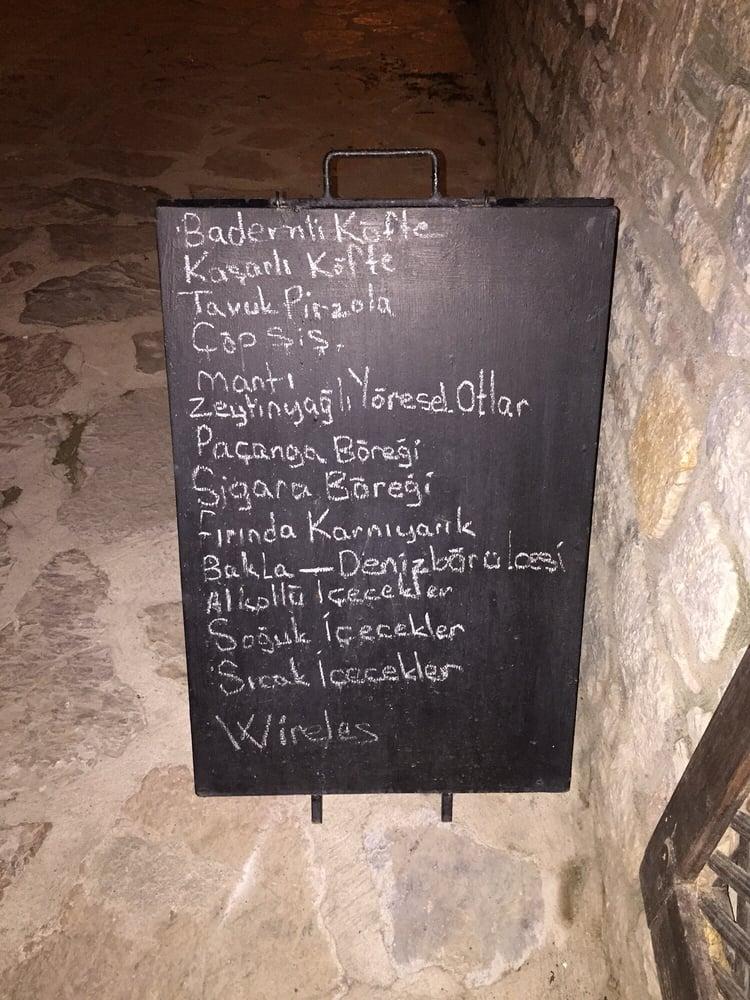 Badernli Köfte
Kaşarlı Köfte
Tavuk Pirzola
Çöp Şiş.
Mantı
Zeytinyağlı Yöresel Otlar
Paçanga Böreği
Sigara Böreği
Fırında Karnıyarık
Bakla — Denizbörülcesi
Alkollü İçecekler
Soğuk İçecekler
Sıcak İçecekler
Wireles